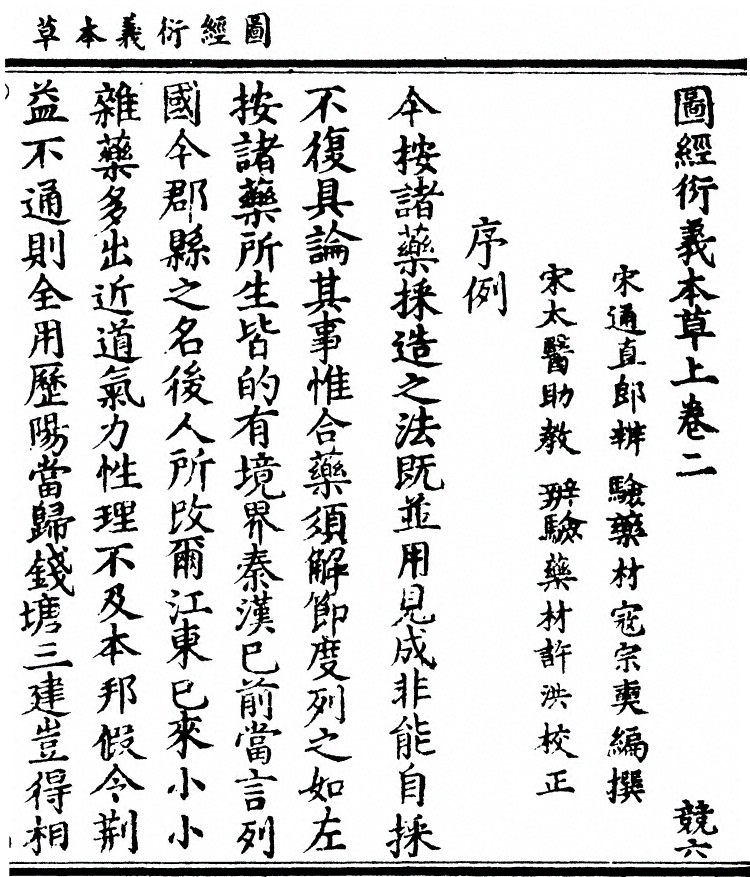 圖經衍義本草
圖經衍義本草上卷二
競六
宋通直郎辨驗藥材寇宗奭編撰
宋太醫助教辨驗藥材許洪校正
序例
今按諸藥採造之法既並用見成非能自採
不復具論其事惟合藥須解節度列之如左
按諸藥所生皆的有境界秦漢已前當言列
國今郡縣之名後人所改爾江東已來小小
雜藥多出近道氣力性理不及本邦假令荆
益不通則全用歷陽當歸錢塘三建豈得相